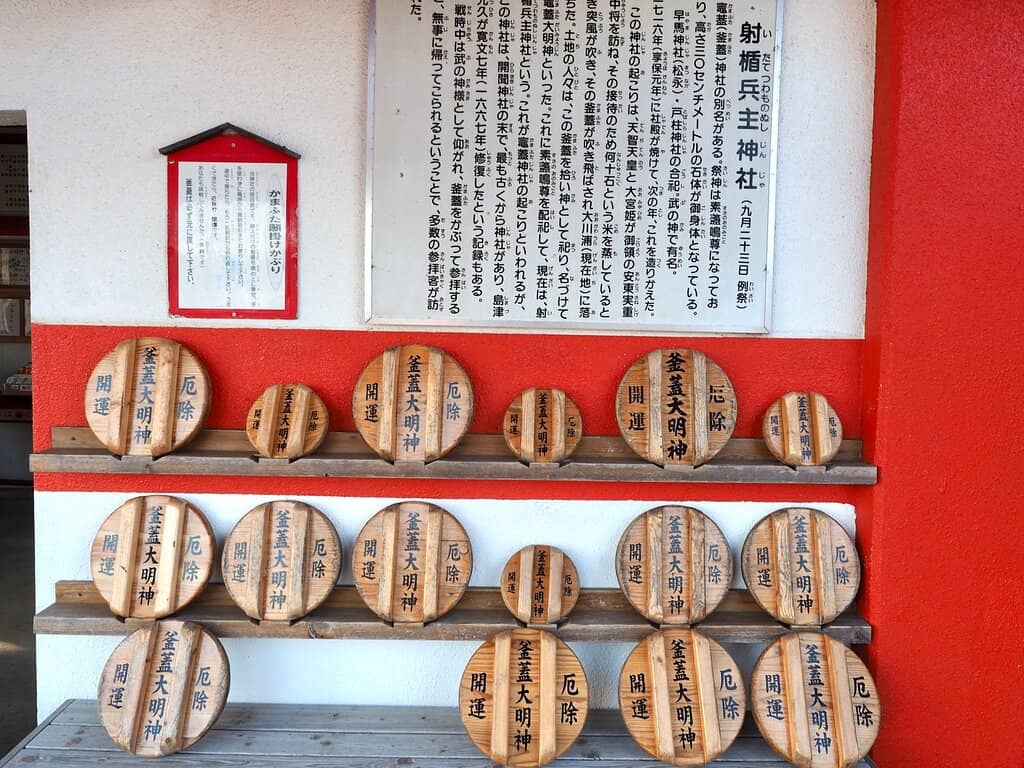 射楯兵主神社（九月二十三日 例祭）
竈蓋（釜蓋）神社の別名がある。祭神は素盞嗚尊になってお
り、高さ三〇センチメートルの石体が御身体となっている。
早馬神社（松永）・戸柱神社の合祀。武の神で有名。
七一六年（享保元年）に社殿が焼けて、次の年、これを造りかえた。
この神社の起こりは、天智天皇と大宮姫が御領の安東実重
中将を訪ね、その接待のため何十石という米を蒸していると
き突風が吹き、その釜蓋が吹き飛ばされ大川浦（現在地）に落
ちた。土地の人々は、この釜蓋を拾い神として祀り、名づけて
竈蓋大明神といった。これに素盞嗚尊を配祀して、現在は、射
楯兵主神社という。これが竈蓋神社の起こりといわれるが、
この神社は、開聞神社の末で、最も古くから神社があり、島津
元久が寛文七年（一六六七年）修復したという記録もある。
戦時中は武の神様として仰がれ、釜蓋をかぶって参拝する
と、無事に帰ってこられるということで、多数の参拝客が訪
れた。
かまふた願掛けかぶり
釜蓋は必ず元に戻して下さい。
厄除
釜蓋大明神
開運
厄除
釜蓋大明神
開運
厄除
釜蓋大明神
開運
厄除
釜蓋大明神
開運
厄除
釜蓋大明神
開運
厄除
釜蓋大明神
開運
厄除
釜蓋大明神
開運
厄除
釜蓋大明神
開運
厄除
釜蓋大明神
開運
厄除
釜蓋大明神
開運
厄除
釜蓋大明神
開運
厄除
釜蓋大明神
開運
厄除
釜蓋大明神
開運
厄除
釜蓋大明神
開運
厄除
釜蓋大明神
開運
厄除
釜蓋大明神
開運